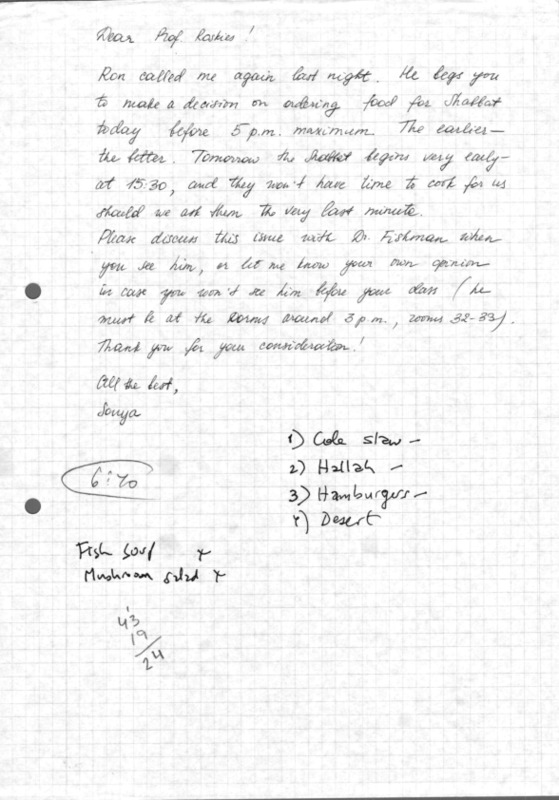 Dear Prof Roskies!
Ron called me again last night. He begs you
to make a decision on ordering food for Shabbat
today before 5 p.m. maximum. The earlier—
the better. Tomorrow the Shabbat begins very early—
at 15:30, and they won't have time to cook for us
should we ask them the very last minute.
Please discuss this issue with Dr. Fishman when
you see him, or let me know your own opinion
in case you won't see him before your class (he
must be at the dorms around 3 p.m., rooms 32-33).
Thank you for your consideration!
All the best,
Sonya
1) Cole slaw –
2) Hallah –
3) Hamburgers –
4) Desert
6:40
Fish Soup x
Mushroom salad x
43
19
24